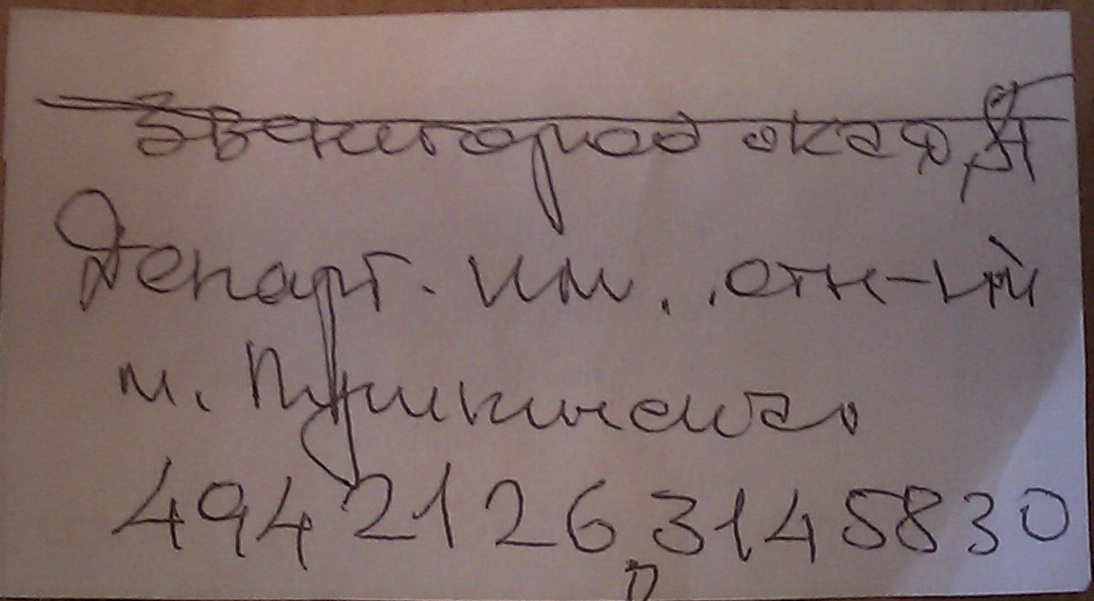 Звенигородская, 9
Департ. им. отн-ий
м. Пушкинская
4942126,3145830